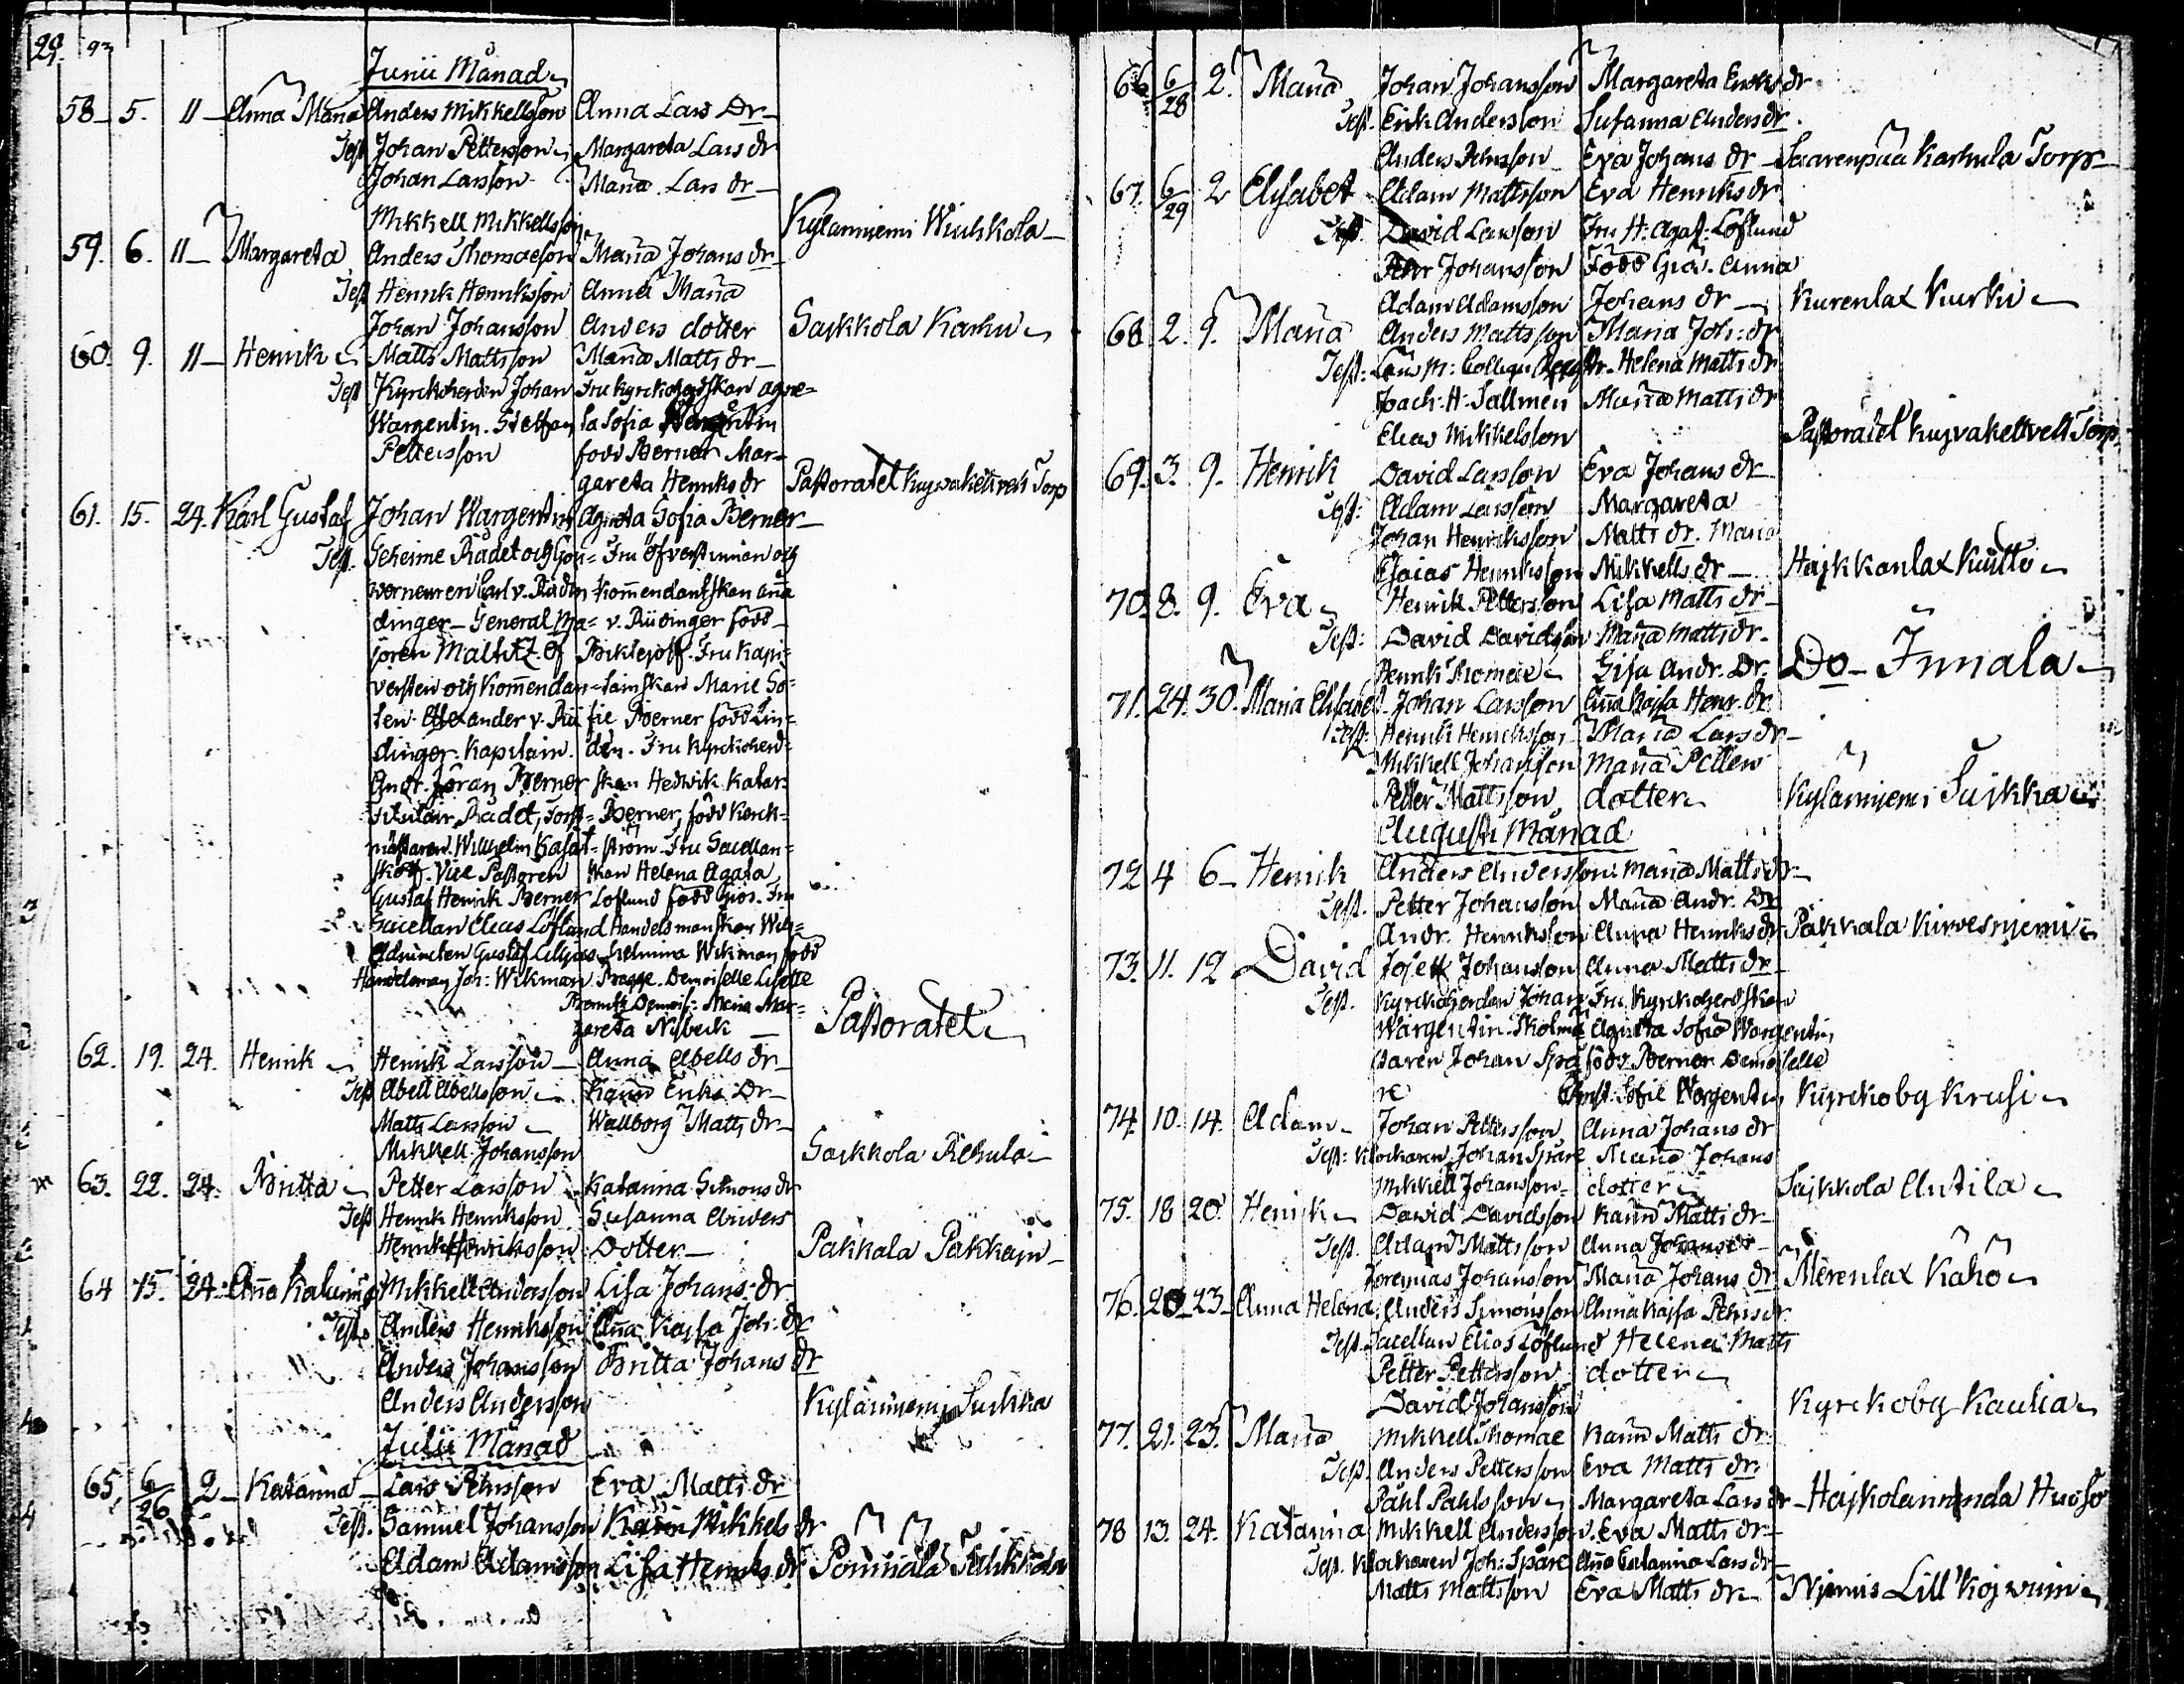 29. 93
Junii Månad
58 5. 11 Anna Maria Anders Mikkellsson Anna Lars Dr
Test. Johan Pettersson Margareta Lars dr
Johan Larsson Maria Lars dr
Mikkell Mikkellsson Kylänniemi
59. 6. 11 Margareta Anders Thomaeson Maria Johans dr
Test Henrik Henriksson Anna Maria
Johan Johansson Anders dotter Saikkola Karhu
60. 9. 11 Henrik Matts Mattsson Maria Matts dr
Test Kyrckoherden Johan Fru kyrckoherdskan Agne=
Wargentin. Steffan ta Sofia Wargentin
Pettersson född Berner Mar=
gareta Henriks dr Pastoratet Torp
61. 15. 24. Karl Gustaf Johan Wargentin Agneta Sofia Berner
Test. Geheime Rådet och Gou= Fru öfverstinnan och
verneuren Carl v. Rüdin kommendantskan Anna
dinger General Ma= v. Rüdinger född
joren Maltitz. Öf Fru Kapi=
versten och kommendan= tainskan Marie So=
ten Alexander v. Rü fie Berner född Lin=
dinger. Kapitain. dén. Fru kyrckoherd=
Andr. Jöran Berner skan Hedwik Katar.
Titulair Rådet, Forst= Berner, född Kerck=
mästaren Wilhelm ström. Fru Sacellan=
Vice Pastoren skan Helena Agata
Gustaf Henrik Berner Löflund född Giös. Fru
Sacellan Elias Löflund Handelsmanskan Wil=
Adjuncten Gustaf helmina Wikman född
Handelsman Joh: Wikman Bagge. Demoiselle Lisette
Demois: Maria Mar=
gareta Pastoratet
62. 19. 24. Henrik Henrik Larsson Anna Abells dr
Test Abell Abellsson Karin Eriks Dr
Matts Larsson Wallborg Matts dr
Mikkell Johansson Saikkola
63. 22. 24. Britta Petter Larsson Katarina Simons dr
Test Henrik Henriksson Susanna Anders
Henrik Henriksson Dotter Pakkala Pakkain
64 15. 24. Anna Katarina Mikkell Andersson Lisa Johans dr
Test. Anders Henriksson Anna Kajsa Joh: dr
Anders Johansson Britta Johans dr
Anders Andersson Kylänniemi Suikka
Julii Månad
65. 6/26 2 Katarina Lars Pehrsson Eva Matts dr
Test. Samuel Johansson Karin Mikkels dr
Adam Adamsson Lisa Henriks dr
66 6/28 2. Maria Johan Johansson Margareta Eriks dr
Test. Erik Andersson Susanna Anders dr.
Anders Pehrsson Eva Johans dr Saarenpää Karhula Torp
67. 6/29 2 Elisabet Adam Mattsson Eva Henriks dr
Test. David Larsson Fru H: Agat: Löflund
Pehr Johansson Född Giös. Anna
Adam Adamsson Johans dr Kurenlax Kurki
68 2. 9. Maria Anders Mattsson Maria Joh: dr
Test: Helena Matts dr
Joach: H: Sallmen Maria Matts dr
Elias Mikkelsson Pastoratet Torp.
69. 3. 9. Henrik David Larsson Eva Johans dr
Test: Adam Larsson Margareta
Johan Henriksson Matts dr. Maria
Esaias Henriksson Mikkells dr Hajkkanlax
70. 8. 9. Eva Henrik Pettersson Lisa Matts dr
Test: David Davidsson Maria Matts dr.
Henrik Thomae Lisa Andr. Dr. Do Innala
71. 24. 30. Maria Elisabet Johan Larsson Anna Kajsa Henr. dr.
Test: Henrik Henriksson Maria Lars dr
Mikkell Johansson Maria Petters
Petter Mattsson dotter Kylänniemi Suikka
Augusti Månad
72 4 6 Henrik Anders Andersson Maria Matts dr
Test. Petter Johansson Maria Andr. Dr
Andr. Henriksson Anna Henriks dr Pakkala Kirvesniemi
73. 11. 12 David Josef Johansson Anna Matts dr
Test. Kyrckoherden Johan Fru Kyrckoherdskan
Wargentin Skolmä Agneta Sofia Wargentin
staren Johan Spå född Berner Demoiselle
re Sofie Wargentin Kyrckoby Krusi
74. 10. 14. Adam Johan Pettersson Anna Johans dr
Test: Klockaren Johan Spåre Maria Johans
Mikkell Johansson dotter Saikkola Antila
75. 18 20. Henrik David Davidsson Karin Matts dr
Test. Adam Mattsson Anna Johans dr
Jeremias Johansson Maria Johans dr Merenlax Kähö
76. 20 23 Anna Helena Anders Simonsson Anna Kajsa Pehrs dr
Test. Sacellan Elias Löflund Helena Matts
Petter Pettersson dotter
David Johansson Kyrckoby Kaukia
77. 21. 23. Maria Mikkell Thomae Karin Matts dr
Test. Anders Pettersson Eva Matts dr.
Påhl Påhlsson Margareta Lars dr
78 13. 24. Katarina Mikkell Andersson Eva Matts dr
Test. Klockaren Joh: Spåre Anna Catarina Lars dr
Matts Mattsson Eva Matts dr